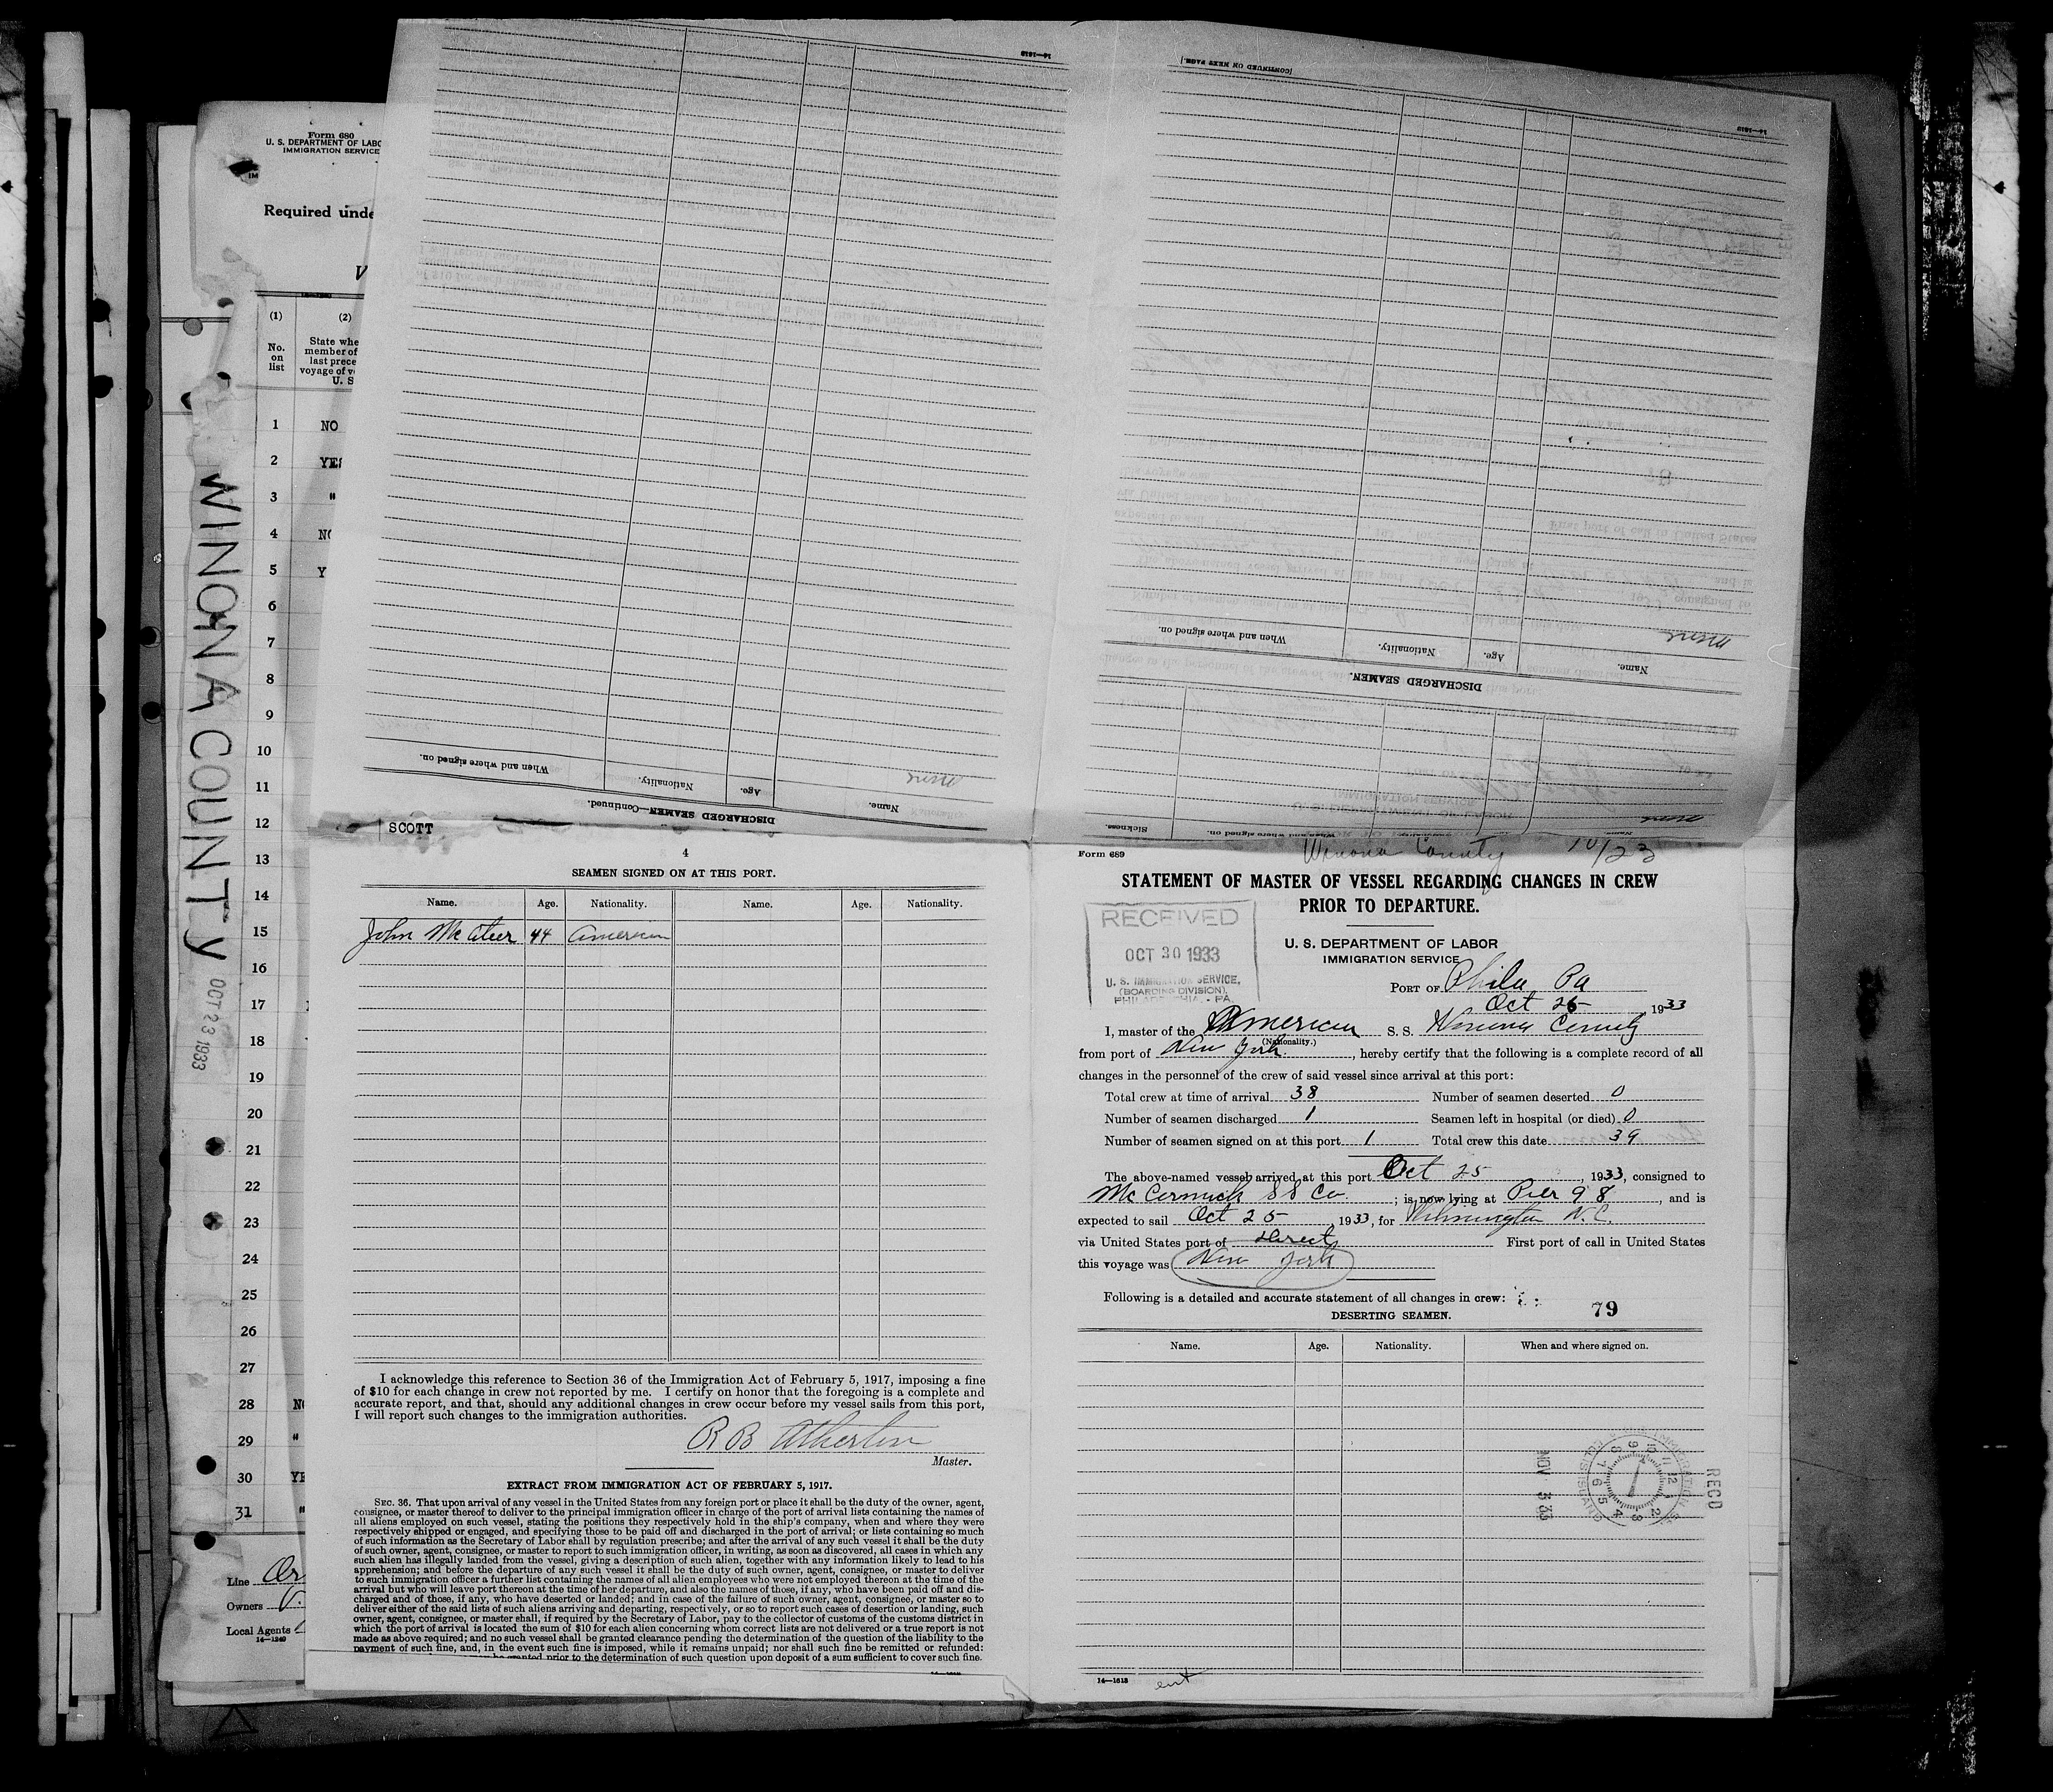 Form 680
U. S. DEPARTMENT OF LABO
IMMIGRATION SERVICE
Required unde
V
(1) (2)
No. on list
State whe
member of
last prece
voyage of v
U. S
1 NO
2 YES
3 "
4 NO
5 Y
6
7
8
9
10
11
12 SCOTT
13
14
15
16
17
18
19
20
21
22
23
24
25
26
27
28 NO
29 "
30 YE
31 "
Line Or
Owners
Local Agents
14—1240
WINONA COUNTY
OCT 23 1933
14—1613
[CONTINUED ON NEXT PAGE.]
14—1613
DISCHARGED SEAMEN—Continued.
Name. Age. Nationality. When and where signed on.
none
DISCHARGED SEAMEN.
Name. Age. Nationality. When and where signed on.
none
Name. When and where signed on. Sickness.
none
4
SEAMEN SIGNED ON AT THIS PORT.
Name. Age. Nationality. Name. Age. Nationality.
John McAteer 44 American
I acknowledge this reference to Section 36 of the Immigration Act of February 5, 1917, imposing a fine
of $10 for each change in crew not reported by me. I certify on honor that the foregoing is a complete and
accurate report, and that, should any additional changes in crew occur before my vessel sails from this port,
I will report such changes to the immigration authorities.
R B Atherton
Master.
EXTRACT FROM IMMIGRATION ACT OF FEBRUARY 5, 1917.
SEC. 36. That upon arrival of any vessel in the United States from any foreign port or place it shall be the duty of the owner, agent,
consignee, or master thereof to deliver to the principal immigration officer in charge of the port of arrival lists containing the names of
all aliens employed on such vessel, stating the positions they respectively hold in the ship's company, when and where they were
respectively shipped or engaged, and specifying those to be paid off and discharged in the port of arrival; or lists containing so much
of such information as the Secretary of Labor shall by regulation prescribe; and after the arrival of any such vessel it shall be the duty
of such owner, agent, consignee, or master to report to such immigration officer, in writing, as soon as discovered, all cases in which any
such alien has illegally landed from the vessel, giving a description of such alien, together with any information likely to lead to his
apprehension; and before the departure of any such vessel it shall be the duty of such owner, agent, consignee, or master to deliver
to such immigration officer a further list containing the names of all alien employees who were not employed thereon at the time of the
arrival but who will leave port thereon at the time of her departure, and also the names of those, if any, who have been paid off and dis-
charged and of those, if any, who have deserted or landed; and in case of the failure of such owner, agent, consignee, or master so to
deliver either of the said lists of such aliens arriving and departing, respectively, or so to report such cases of desertion or landing, such
owner, agent, consignee, or master shall, if required by the Secretary of Labor, pay to the collector of customs of the customs district in
which the port of arrival is located the sum of $10 for each alien concerning whom correct lists are not delivered or a true report is not
made as above required; and no such vessel shall be granted clearance pending the determination of the question of the liability to the
payment of such fine, and, in the event such fine is imposed, while it remains unpaid; nor shall such fine be remitted or refunded:
be granted prior to the determination of such question upon deposit of a sum sufficient to cover such fine.
Form 689
Winona County 10/23
STATEMENT OF MASTER OF VESSEL REGARDING CHANGES IN CREW
PRIOR TO DEPARTURE.
RECEIVED
OCT 30 1933
U. S. IMMIGRATION SERVICE,
(BOARDING DIVISION),
PHILADELPHIA, - PA.
U. S. DEPARTMENT OF LABOR
IMMIGRATION SERVICE
PORT OF Phila Pa
Oct 25, 1933
I, master of the American S. S. Winona County
(Nationality.)
from port of New York, hereby certify that the following is a complete record of all
changes in the personnel of the crew of said vessel since arrival at this port:
Total crew at time of arrival 38 Number of seamen deserted 0
Number of seamen discharged 1 Seamen left in hospital (or died) 0
Number of seamen signed on at this port 1 Total crew this date 39
The above-named vessel arrived at this port Oct 25, 1933, consigned to
McCormick SS Co.; is now lying at Pier 98, and is
expected to sail Oct 25, 1933, for Wilmington N.C.
via United States port of Direct First port of call in United States
this voyage was New York
Following is a detailed and accurate statement of all changes in crew:
79
DESERTING SEAMEN.
Name. Age. Nationality. When and where signed on.
RECD
NOV 3 33
14—1613
ent